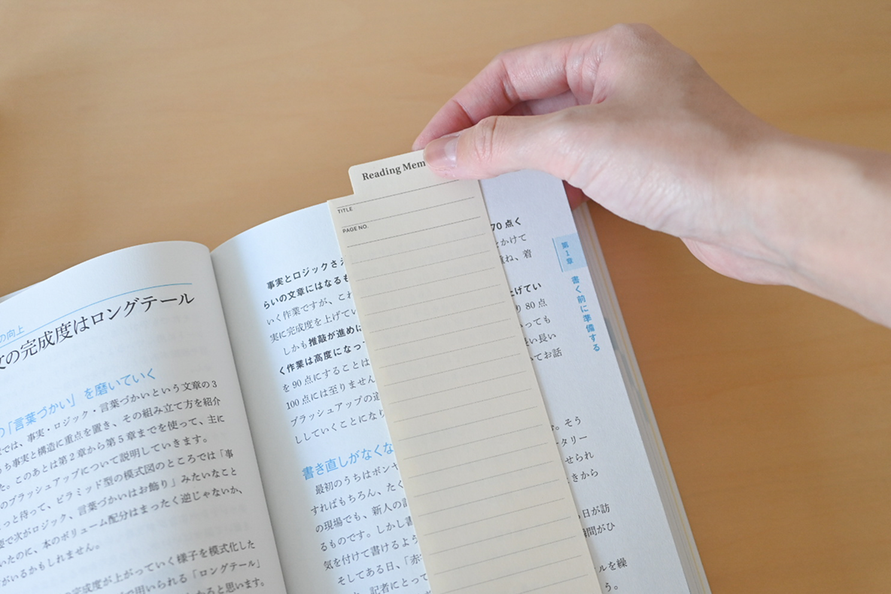 の向上
の完成度はロングテール
の「言葉づかい」を磨いていく
では、事実・ロジック・言葉づかいという文章の3
ち事実と構造に重点を置き、その組み立て方を紹介
た。このあとは第2章から第5章までを使って、主に
のブラッシュアップについて説明していきます。
っと待って、ピラミッド型の模式図のところでは「事
で次がロジック、言葉づかいはお飾り」みたいなこと
いたのに、本のボリューム配分はまったく逆じゃないか、
がいるかもしれません。
の完成度が上がっていく様子を模式化した
で用いられる「ロングテール」
ると思います。
Reading Mem
TITLE
PAGE NO.
事実とロジックさえ
らいの文章にはなるも
いく作業ですが、これ
実に完成度を上げてい
しかも推敲が進めば
く作業は高度になっ
を90点にすることは
100点には至りません
ブラッシュアップの道
ししていくことになり
書き直しがなくな
最初のうちはポンヤ
すればもちろん、たく
の現場でも、新人の記
るものです。しかし書
気を付けて書けるよう
そしてある日、「赤
記者にとって
70点く
とかけて
ね、着
上げてい
り80点
っても
長い
てお話
。そう
タリー
せられ
きから
日が訪
間がひ
ルを繰
う。
第1章
書く前に準備する